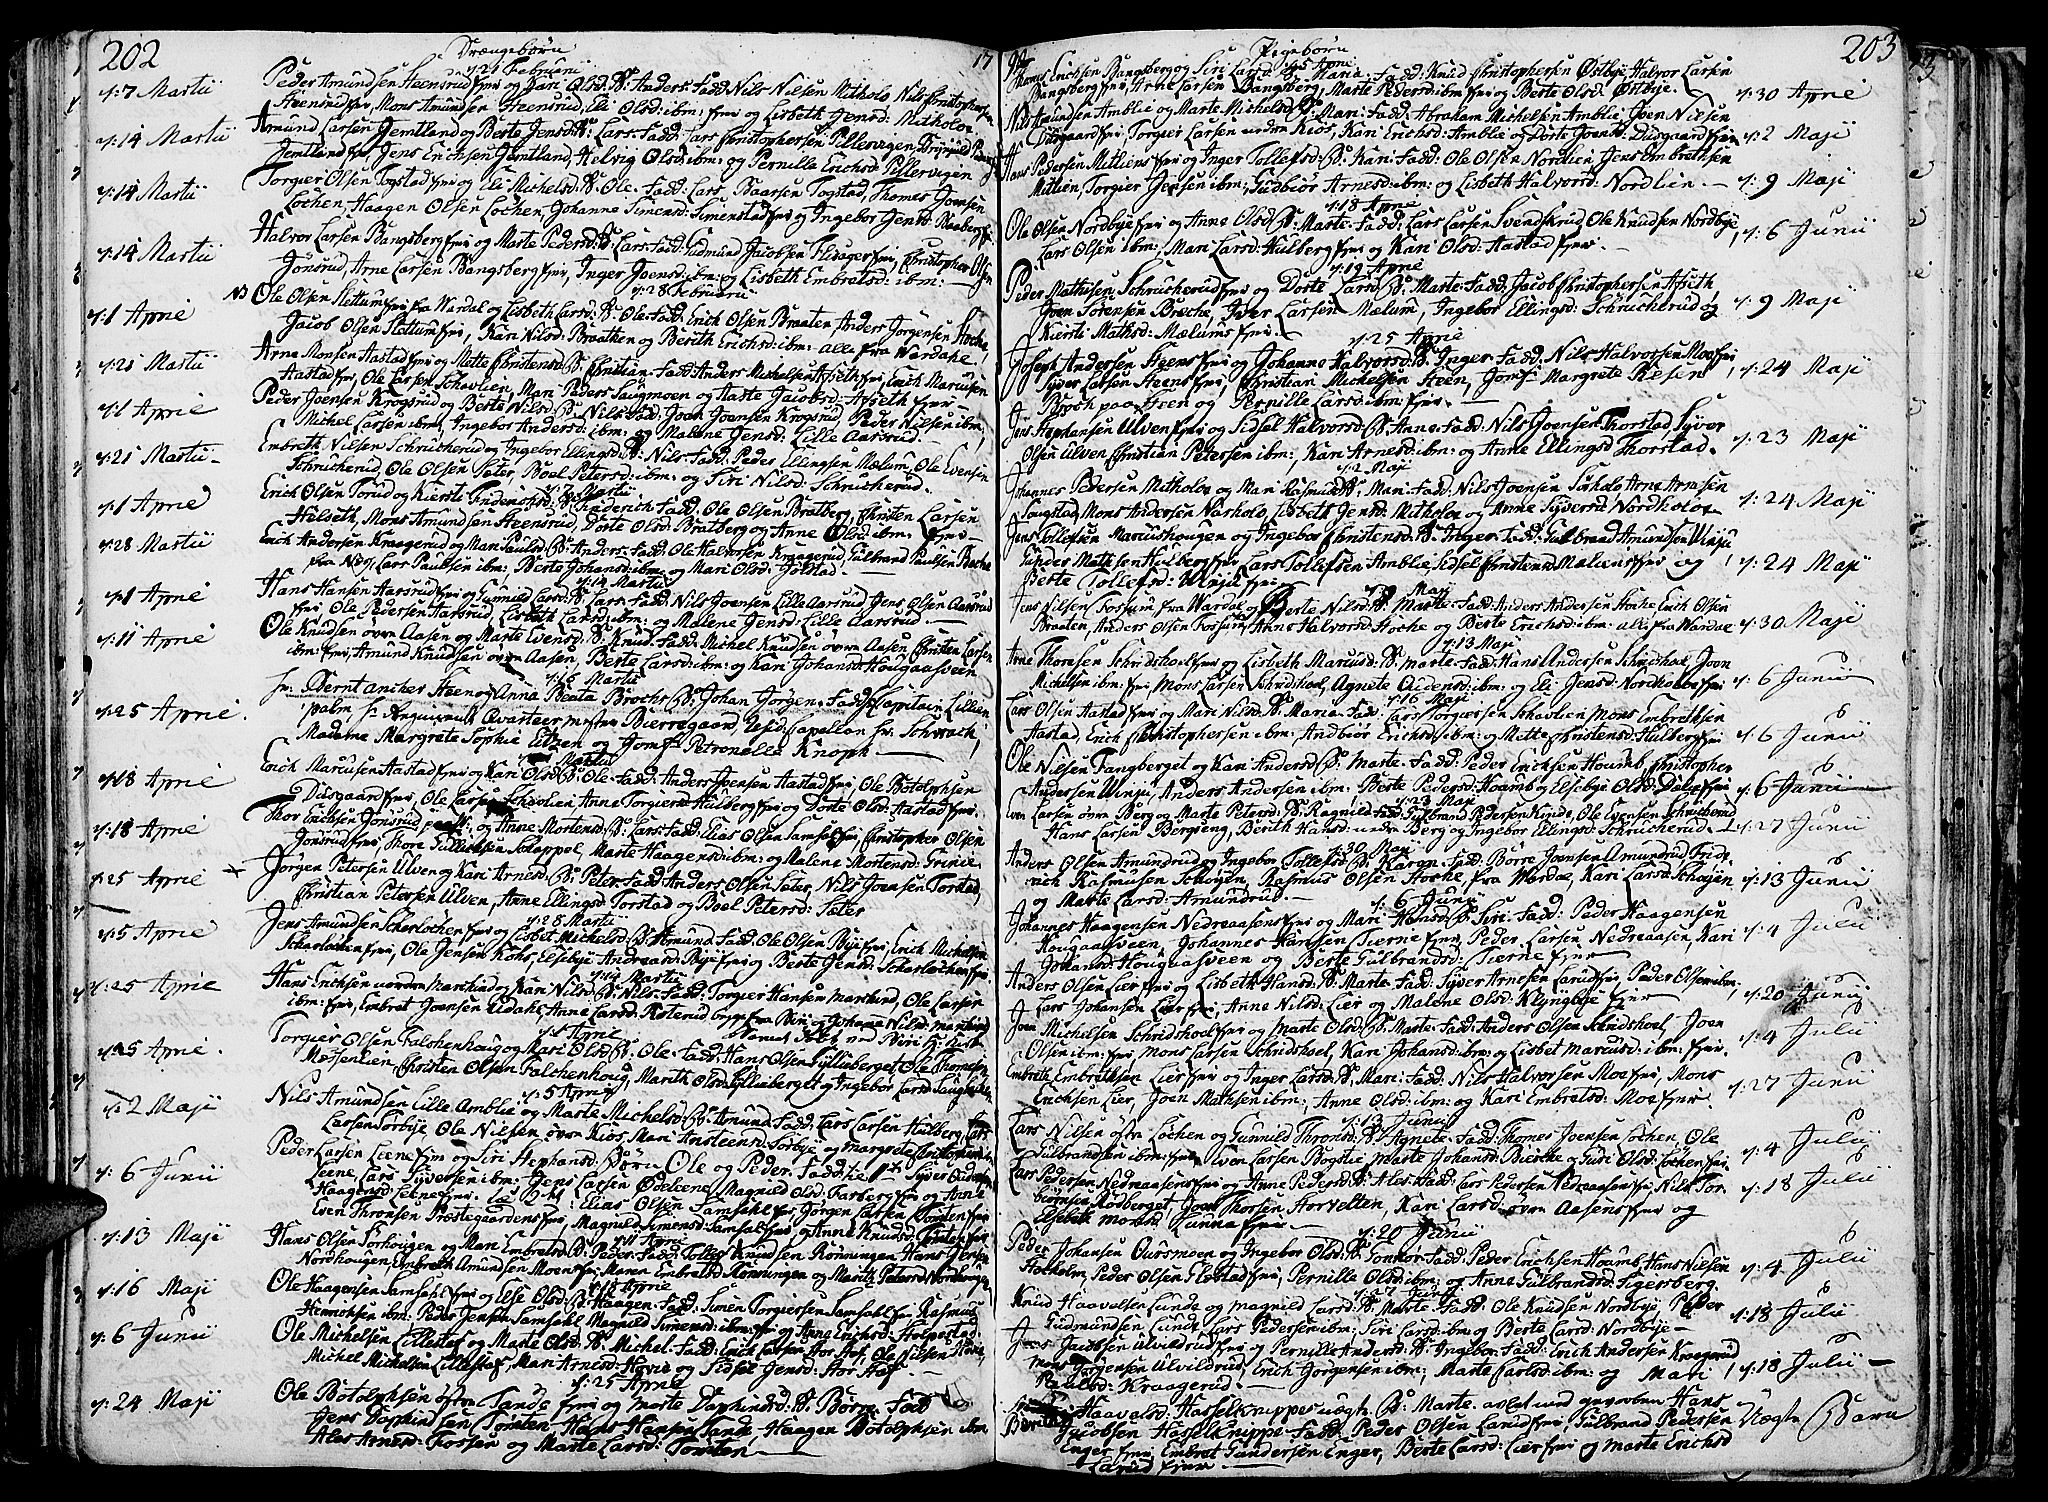 202
Drængebørn
17
d: 21 Februarii
d: 7 Martii
Peder Amundsen Steensrud frn og Kari Olsd: B: Anders. Fadd: Nils Nilsen Mitholo, Nils Christophersen
Steensrud frn, Mons Amundsen Steensrud, Eli Olsd: ibm: frn og Lisbeth Jensd: Mitholoe
d: 14 Martii
Amund Larsen Jemtland og Berte Jensd: B: Lars. Fadd: Lars Christophersen Pellervigen
Jemtland frn, Jens Erichsen Jemtland, Helvig Olsd: ibm: og Pernille Erichsd: Pillervigen
d: 14 Martii
Torgier Olsen Togstad frn og Eli Michelsd: B: Ole. Fadd: Lars Baarsen Togstad, Thomes Joensen
Løchen, Haagen Olsen Løchen, Johanne Simensd: Simenstad frn og Ingebor Jensd:
d: 14 Martii
Halvor Larsen Bangsberg frn og Marte Pedersd: B: Lars. Fadd: Gudmund Jacobsen Flisager frn, Christopher Olsen
Jønsrud, Arne Larsen Bangsberg frn, Inger Joensd: ibm: og Lisbeth Embretsd: ibm:
d: 28 Februarii
d: 1 April
Ole Olsen Slettum frn fra Wardal og Lisbeth Larsd: B: Ole. Fadd: Erich Olsen Braaten, Anders Jørgensen Hoche,
Jacob Olsen Slettum frn, Kari Nilsd: Braathen og Berith Erichsd: ibm: alle fra Wardahl
d: 21 Martii
Arne Monsen Aastad frn og Mette Christensd: B: Christian. Fadd: Anders Michelsen Afseth frn, Erich Marcusen
Aastad frn, Ole Larsen Schavlien, Mari Peders Saugmoen og Aaste Jacobsd: Afseth frn
d: 1 April
Peder Joensen Krogsrud og Berte Nilsd: B: Nils. Fad: Joen Joensen Krogsrud, Peder Nilsen ibm:,
Michel Larsen ibm:, Ingebor Andersd: ibm: og Malene Jensd: Lille Aassrud.
d: 21 Martii
Embreth Nilsen Schrucherud og Ingebor Ellingsd: B: Nils. Fadd: Peder Ellingsen Mælum, Ole Evensen
Schrucherud, Ole Olsen Seter, Boel Petersd: ibm: og Siri Nilsd: Schrucherud.
d: 1 April
Helseth, Mons Amundsen Steensrud, Dorte Olsd: Bratberg og Anne Olsd: ibm: frn
d: 28 Martii
Erich Andersen Kraagerud og Mari Paulsd: B: Anders. Fadd: Ole Halvorsen Kraagerud, Gulbrand Paulsen Bache
fra Næs, Lars Paulsen ibm:, Berte Johansd: ibm: og Mari Olsd: Jølstad.
d: 14 Martii
d: 1 April
Hans Hansen Aassrud frn og Gunnild Larsd: B: Lars. Fadd: Nils Joensen Lille Aarsrud, Jens Olsen Aasrud
frn, Ole Pedersen Aarsrud, Lisbeth Larsd: ibm: og Malene Jensd: Lille Aarsrud.
d: 11 April
Ole Knudsen øvre Aasen og Marte Evensd: B: Knud. Fadd: Michel Knudsen øvre Aasen, Christen Larsen
ibm: frn, Amund Knudsen øvre Aasen, Berte Larsd: ibm: og Kari Johansd: Hougaasveen
d: 16 Martii
d: 25 April.
Hr. Bernt ancher Steen og Anna Beata Brochs B: Johan Jørgen. Fadd: Capitain Lillien
palm, Hr. Regiments Qvarteermester Bierregaard, Resd: Capellan Hr. Schrach,
Madame Margrete Sophie Eitzen og Jomf: Petronelle Knoph
d: 18 April
Erich Marcusen Aastad frn og Kari Olsd: B: Ole. Fadd: Anders Joensen Aastad frn, Ole Botolphsen
Diisgaard frn, Ole Larsen Schavlien, Anne Torgiersd: Hulberg frn og Dorte Olsd: Aastad frn.
d: 18 April
Thor Erichsen Jonsrud og Anne Mortensd: B: Lars. Fadd: Elias Olsen Samsahl frn, Christopher Olsen
Jønsrud frn, Thore Gulliksen Schappel, Marte Haagensd: ibm: og Malene Mortensd: Grinie
d: 25 April
Jørgen Petersen Ulven og Kari Arnesd: B: Peter. Fadd: Anders Olsen Seter, Nils Joensen Torstad,
Christian Petersen Ulven, Anne Ellingsd: Torstad og Boel Petersd: Sæter
d: 28 Martii
d: 5 April
Jens Amundsen Scharløchen frn og Lisbet Michelsd: B: Amund. Fadd: Ole Olsen Bye frn, Erich Michelsen
Scharløchen frn, Ole Jensen Kohs, Elsebye Andreasd: Bye frn og Berte Jensd: Scharløchen frn
d: 14 Martii
d: 25 April
Hans Erichsen nordre Marchind og Kari Nilsd: B: Nils. Fadd: Torgier Hansen Marchind, Ole Larsen
ibm: frn, Embret Joensen Eidahl, Anne Larsd: Roterud bygd fra Birri og Johanne Nilsd: Marchind
d: 5 April
d: 25 April.
Torgier Olsen Falchenhoug og Mari Olsd: B: Ole. Fadd: Hans Olsen Gyllieberget, Ole Thomesen
Messenlien, Christen Olsen Falchenhoug, Marith Olsd: Gyllieberget og Ingebor Larsd:
d: 5 April
d: 2 Maji
Nils Amundsen Lille Amblie og Marte Michelsd: B: Amund. Fadd: Lars Larsen Hulberg, Lars
Larsen Torbye, Ole Nilsen øvre Kios, Mari Ansteensd: Torbye og Margrete
d: 6 Junii
Peder Larsen Leene frn og Siri Stephansd: Børn Ole og Peder. Fadd: til
Leene, Lars Syversen ibm: Jens Larsen Ødeleene, Magnild Olsd: Farberg frn og Anne
Haagensd: Leene frn. Elias Olsen Samsahl frn, Jørgen Larsen Tomten frn,
Even Thronsen Prestegaardens frn, Magnild Simensd: Samsahl frn og Anne Knudsd: Tomten frn
d: 11 April
d: 13 Maji
Hans Olsen Torhougen og Mari Embretsd: B: Peder. Fadd: Tolles Knudsen Rønningen, Hans Jensen
Nordhougen, Embreth Amundsen Moen frn, Maren Embretsd: Rønningen og Marith Petersd: Nordhougen
d: 18 April
d: 16 Maji
Ole Haagensen Samsahl frn og Else Olsd: B: Haagen. Fadd: Simen Torgiersen Samsahl frn, Rasmus
Hemmohsen ibm: Peder Jensen Samsahl, Magnild Simensd: ibm: frn og Anne Erichsd: Holpestad
d: 6 Junii
Ole Michelsen Lillestaf og Marte Olsd: B: Michel. Fadd: Erich Larsen Stor Staf, Ole Nilsen Hovie,
Michel Michelsen Lillestaf, Mari Arnesd: Hovie og Sidsel Jensd: Stor Staf
d: 25 April
d: 24 Maji
Ole Botolphsen østre Sande frn og Marte Daphinsd: B: Børre. Fadd:
Jens Daphinsen Tomten, Hans Hansen Sande, Haagen Botolphsen ibm
Ales Arnesd: Fossen og Marte Larsd: Tomten
203
Pigebørn
d: 5 April
Thomes Erichsen Bangsberg og Siri Larsd: B: Maria. Fadd: Knud Christophersen Østbye, Halvor Larsen
Bangsberg frn, Arne Larsen Bangsberg, Marte Pedersd: ibm: frn og Berte Olsd: Østbye.
d: 30 April
Nils Amundsen Amblie og Marte Michelsd: B: Mari. Fadd: Abraham Michelsen Amblie, Joen Nilsen
Diisgaard frn, Torgier Larsen nedre Kios, Kari Erichsd: Amblie og Dorte Joensd: Diisgaard frn
d: 2 Maji
Hans Pedersen Mitliens frn og Inger Tollefsd: B: Kari. Fadd: Ole Olsen Nordlien, Jens Embrethsen
Mitlien, Torgier Jensen ibm:, Gudbiør Arnesd: ibm: og Lisbeth Halvorsd: Nordlien.
d: 9 Maji
d: 18 April
Ole Olsen Nordbye frn og Anne Olsd: B: Marte. Fadd: Lars Larsen Svendskrud, Ole Knudsen Nordbye,
Lars Olsen ibm:, Mari Larsd: Hulberg frn og Kari Olsd: Aastad frn.
d: 6 Junii
d: 19 April
Peder Mathisen Schrucherud frn og Dorte Larsd: B: Marte. Fadd: Jacob Christophersen Afseth
Joen Sørensen Breche, Iver Larsen Mælum, Ingebor Ellingsd: Schrucherud og
Kierste Mathsd: Mælums frn.
d: 9 Maji
d: 25 April
Joseph Andersen Steens frn og Johanne Halvorsd: B: Inger. Fadd: Nils Halvorsen Moe frn,
Syver Larsen Steens frn, Christian Michelsen Steen, Jomf: Margrete Resen
Broch paa Steen og Pernille Larsd: ibm: frn.
d: 24 Maji
Jens Stephansen Ulven frn og Sidsel Halvorsd: B: Anne. Fadd: Nils Joensen Thorstad, Syver
Olsen Ulven, Christian Petersen ibm:, Kari Arnesd: ibm: og Anne Ellingsd: Thorstad.
d: 23 Maji
d: 2 Maji
Johannes Pedersen Mitholoe og Mari Rasmusd: B: Mari. Fadd: Nils Joensen Sørholo, Arne Arnesen
Saugstad, Mons Andersen Norholo, Lisbeth Jensd: Mitholoe og Anne Syversd: Nordholoe.
d: 24 Maji
Jens Tollefsen Marcushougen og Ingebor Christensd: B: Inger. Fadd: Gulbrand Amundsen Winju
Gunder Mathisen Hulberg frn, Lars Tollefsen Amblie, Sidsel Christensd: Mæliens frn og
Berte Tollefsd: Winju frn
d: 24 Maji
Jens Nilsen Fossum fra Wardal og Berte Nilsd: B: Marte. Fadd: Anders Andersen Hoche, Erich Olsen
Braaten, Anders Olsen Fossum, Anne Halvorsd: Hoche og Berte Erichsd: ibm: alle fra Wardal
d: 30 Maji
d: 13 Maji
Arne Thomesen Schridshoel frn og Lisbeth Marcusd: B: Marte. Fadd: Hans Andersen Schridshoel, Joen
Michelsen ibm: frn, Mons Larsen Schridshoel, Agnete Audensd: ibm: og Eli Jensd: Nordholoe frn
d: 6 Junii
d: 16 Maji
Lars Olsen Aastad frn og Mari Nilsd: B: Maria. Fadd: Lars Torgiersen Schavlien, Mons Embrethsen
Aastad, Erich Christophersen ibm:, Andbiør Erichsd: ibm: og Mette Christensd: Hulberg frn
d: 6 Junii
Ole Nilsen Fangberget og Kari Andersd: B: Marte. Fadd: Peder Erichsen Houmb, Christopher
Andersen Winju, Anders Andersen ibm:, Berte Pedersd: Houmb og Elsebye Olsd: Dale frn
d: 6 Junii
d: 23 Maji
Even Larsen øvre Berg og Marte Petersd: B: Ragnild. Fadd: Gulbrand Pedersen Kinde, Ole Evensen Schrucherud
Hans Larsen Bergseng, Berith Hansd: nedre Berg og Ingebor Ellingsd: Schrucherud.
d: 27 Junii
d: 30 Maji
Anders Olsen Amundrud og Ingebor Tollefsd: B: Karen. Fadd: Børre Joensen Amundrud, Fride-
rich Rasmusen Schøyen, Rasmus Olsen Hoche fra Wardal, Kari Larsd: Schøyen
og Marte Larsd: Amundrud.
d: 13 Junii
d: 6 Junii
Johannes Haagensen Nedreaasens frn og Mari Hansd: B: Siri. Fadd: Peder Haagensen
Hougaasveen, Johannes Hansen Tierne frn, Peder Larsen Nedreaasen, Kari
Johansd: Hougaasveen og Berte Gulbrandsd: Tierne frn
d: 4 Julii
Anders Olsen Lier frn og Lisbeth Hansd: B: Marte. Fadd: Syver Arnesen Larud frn, Peder Olsen ibm.
Lars Johansen Lier frn, Anne Nilsd: Lier og Malene Olsd: Klyngbye frn
d: 20 Junii
Joen Michelsen Schridshoel frn og Marte Olsd: B: Marte. Fadd: Anders Olsen Schridshoel, Joen
Olsen ibm: frn, Mons Larsen Schridshoel, Kari Johansd: ibm: og Lisbet Marcusd: ibm: frn.
d: 4 Julii
Embreth Embrethsen Lier frn og Inger Larsd: B: Mari. Fadd: Nils Halvorsen Moe frn, Mons
Erichsen Lier, Joen Mathsen ibm:, Anne Olsd: ibm: og Kari Embretsd: Moe frn.
d: 27 Junii
d: 13 Junii
Lars Nilsen østre Løchen og Gunnild Thronsd: B: Agnete. Fadd: Thomes Joensen Løchen, Ole
Gulbrandsen ibm: frn, Iver Larsen Bogstie, Marte Johansd: Bierche og Guri Olsd: Løchen frn
d: 4 Julii
Lars Pedersen Nedreaasens frn og Anne Pedersd: B: Ales. Fadd: Lars Pedersen Nedreaasens frn, Nils Tor-
biørnsen Rødberget, Joen Thorsen Horvelten, Kari Larsd: øvre Aasens frn og
Elsebeth Monsd: Sunna frn
d: 18 Julii
d: 20 Junii
Peder Johansen Oursmoen og Ingebor Olsd: B: Fadd: Peder Erichsen Houmb, Hans Nilsen
Stocholm, Peder Olsen Glestad frn, Pernille Olsd: ibm: og Anne Gulbrandsd: Sigersberg
d: 4 Julii
d: 27 Junii
Knud Haavelsen Lunde og Magnild Larsd: B: Marte. Fadd: Ole Knudsen Nordbye, Peder
Gudmundsen Lunde, Lars Pedersen ibm:, Siri Larsd: ibm: og Berte Larsd: Nordbye
d: 18 Julii
Jens Jacobsen Ulvildrud frn og Pernille Andersd: B: Ingebor. Fadd: Erich Andersen Kraagerud
Mons Jørgensen Ulvildrud, Erich Jørgensen ibm:, Marte Carlsd: ibm: og Mari
Paulsd: Kraagerud.
d: 18 Julii
Haavalsd: Hasselknuppe uægte B: Marte. avlet med ungkarl Hans
Jacobsen Hasselknuppe. Fadd: Peder Olsen Larud frn, Gulbrand Pedersen
Enger frn, Embret Gundersen Enger, Berte Larsd: Lier frn og Marte Erichsd
Larud frn
Uægte Barn